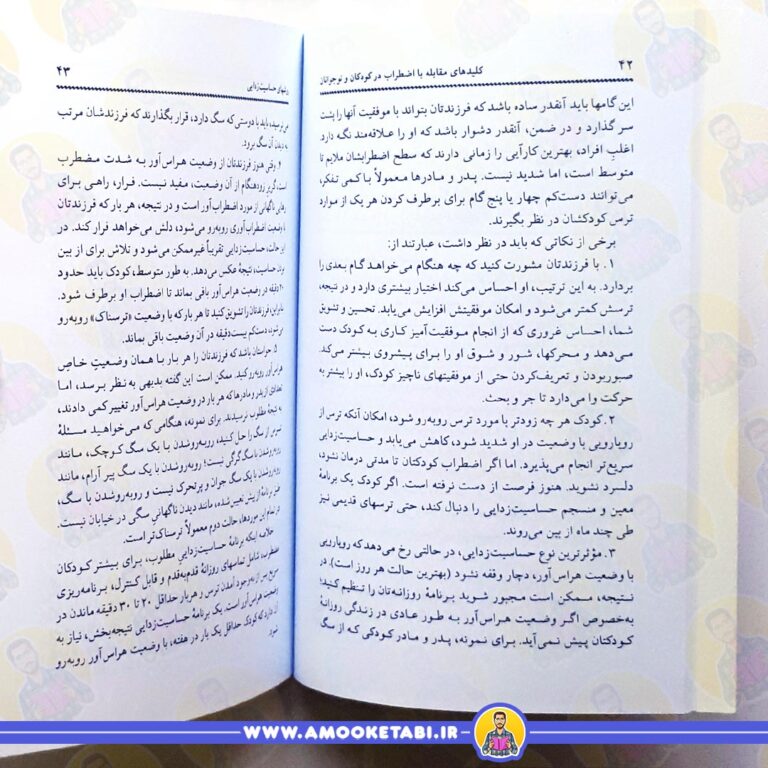 ۴۲
کلیدهای مقابله با اضطراب در کودکان و نوجوانان
این گامها باید آنقدر ساده باشد که فرزندتان بتواند با موفقیت آنها را پشت
سر گذارد و در ضمن، آنقدر دشوار باشد که او را علاقه‌مند نگه دارد
اغلبِ افراد، بهترین کارآیی را زمانی دارند که سطح اضطرابشان ملایم تا
متوسط است، اما شدید نیست. پدر و مادرها معمولاً با کمی تفکر،
می‌توانند دست‌کم چهار یا پنج گام برای برطرف کردن هر یک از موارد
ترس کودکشان در نظر بگیرند.
برخی از نکاتی که باید در نظر داشت، عبارتند از:
۱. با فرزندتان مشورت کنید که چه هنگام می‌خواهد گام بعدی را
بردارد. به این ترتیب، او احساس می‌کند اختیار بیشتری دارد و در نتیجه،
ترسش کمتر می‌شود و امکان موفقیتش افزایش می‌یابد. تحسین و تشویق
شما، احساس غروری که از انجام موفقیت‌آمیز کاری به کودک دست
می‌دهد و محرکها، شور و شوق او را برای پیشروی بیشتر می‌کند.
صبوربودن و تعریف‌کردن حتی از موفقیتهای ناچیز کودک، او را بیشتر به
حرکت وا می‌دارد تا جر و بحث.
۲. کودک هر چه زودتر با مورد ترس روبه‌رو شود، امکان آنکه ترس از
رویارویی با وضعیت در او شدید شود، کاهش می‌یابد و حساسیت‌زدایی
سریع‌تر انجام می‌پذیرد. اما اگر اضطراب کودکتان تا مدتی درمان نشود،
دلسرد نشوید. هنوز فرصت از دست نرفته است. اگر کودک یک برنامهٔ
معین و منسجم حساسیت‌زدایی را دنبال کند، حتی ترسهای قدیمی نیز
طی چند ماه از بین می‌روند.
۳. مؤثرترین نوع حساسیت‌زدایی، در حالتی رخ می‌دهد که رویارویی
با وضعیت هراس‌آور، دچار وقفه نشود (بهترین حالت هر روز است). در
نتیجه، ممکن است مجبور شوید برنامهٔ روزانه‌تان را تنظیم کنید؛
به‌خصوص اگر وضعیت هراس‌آور به طور عادی در زندگی روزانهٔ
کودکتان پیش نمی‌آید. برای نمونه، پدر و مادر کودکی که از سگ
۴۳
حساسیت‌زدایی
می‌ترسید، باید با دوستی که سگ دارد، قرار بگذارند که فرزندشان مرتب
به دیدن آن سگ برود.
۴. وقتی هنوز فرزندتان از وضعیت هراس‌آور به شدت مضطرب
است، گریز زودهنگام از آن وضعیت، مفید نیست. فرار، راهی برای
رهایی ناگهانی از مورد اضطراب‌آور است و در نتیجه، هر بار که فرزندتان
با وضعیت اضطراب‌آوری روبه‌رو می‌شود، دلش می‌خواهد فرار کند. در
این حالت، حساسیت‌زدایی تقریباً غیرممکن می‌شود و تلاش برای از بین
بردن حساسیت، نتیجهٔ عکس می‌دهد. به طور متوسط، کودک باید حدود
۲۰ دقیقه در وضعیت هراس‌آور باقی بماند تا اضطراب او برطرف شود.
بنابراین، فرزندتان را تشویق کنید تا هر بار که با وضعیت «ترسناک» روبه‌رو
می‌شود، دست‌کم بیست دقیقه در آن وضعیت باقی بماند.
۵. حواستان باشد که فرزندتان را هر بار با همان وضعیتِ خاصِ
هراس‌آور روبه‌رو کنید. ممکن است این گفته بدیهی به نظر برسد، اما
تعدادی از پدر و مادرها که هر بار در وضعیت هراس‌آور تغییر کمی دادند،
به نتیجهٔ مطلوب نرسیدند. برای نمونه، هنگامی که می‌خواهید مسئلهٔ
ترس از سگ را حل کنید، روبه‌روشدن با یک سگ کوچک، مانند
روبه‌روشدن با سگ گرگی نیست؛ روبه‌روشدن با یک سگ پیر آرام، مانند
روبه‌روشدن با یک سگ جوان و پرتحرک نیست و روبه‌روشدن با سگ،
طبق برنامهٔ از پیش تعیین شده، مانند دیدن ناگهانیِ سگی در خیابان نیست.
در تمام این موردها، حالت دوم معمولاً ترسناک‌تر است.
خلاصه اینکه برنامهٔ حساسیت‌زدایی مطلوب، برای بیشتر کودکان
اضطراب، شامل تماسهای روزانهٔ قدم‌به‌قدم و قابل کنترل، برنامه‌ریزی
سریع پس از به‌وجود آمدن ترس و هر بار حداقل ۲۰ تا ۳۰ دقیقه ماندن در
وضعیت هراس‌آور است. یک برنامهٔ حساسیت‌زدایی نتیجه‌بخش، نیاز به
آن دارد که کودک حداقل یک بار در هفته، با وضعیت هراس‌آور روبه‌رو
شود
WWW.AMOOKETABI.IR